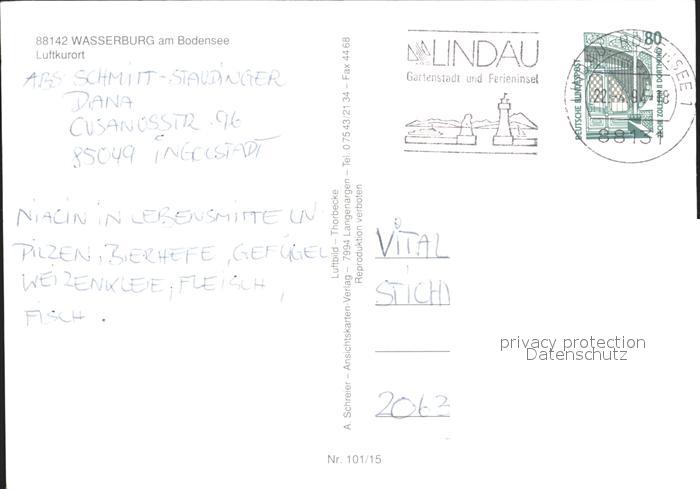 88142 WASSERBURG am Bodensee
Luftkurort
ABS SCHMITT-STAUDINGER
DIANA
CUSANUSSTR. 96
85049 INGOLSTADT
NIACIN IN LEBENSMITTELN
PILZEN, BIERHEFE, GEFÜGEL
WEIZENKLEIE, FLEISCH,
FISCH.
A. Schreier – Ansichtskarten-Verlag – 7994 Langenargen – Tel. 0 75 43/21 34 – Fax 44 68
Luftbild – Thorbecke
Reproduktion verboten
Nr. 101/15
LINDAU
Gartenstadt und Ferieninsel
80
DEUTSCHE BUNDESPOST
ZECHE ZOLLERN II DORTMUND
88131
VITAL
STICH
2063
privacy protection
Datenschutz